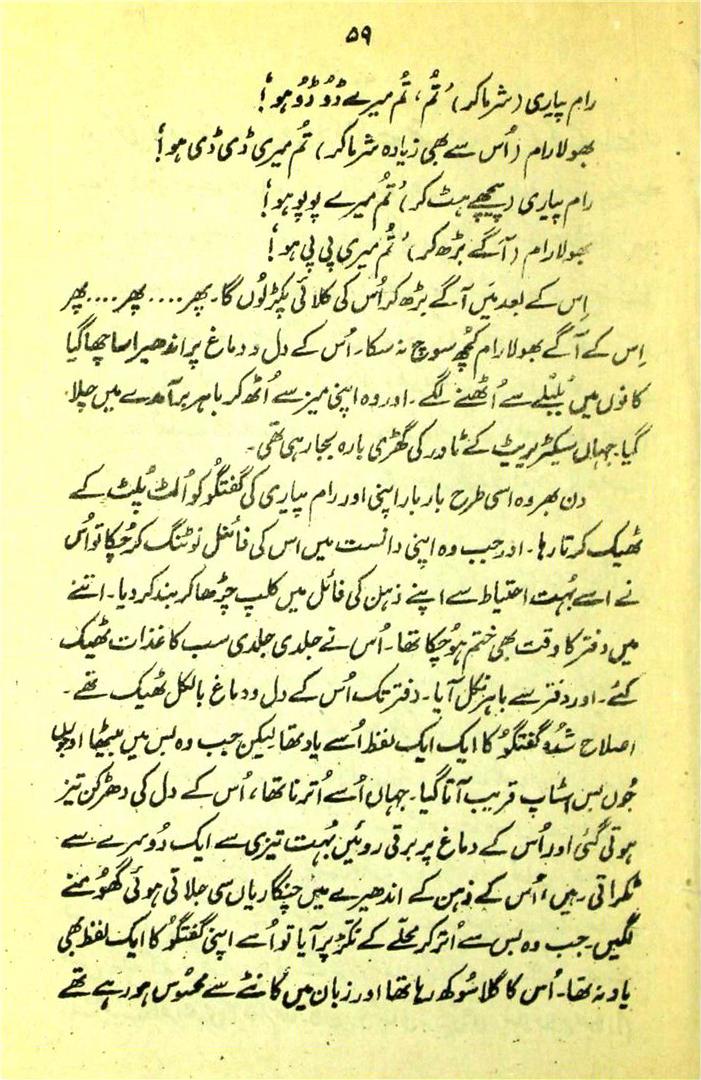 ۵۹
رام پیاری (شرما کر) ’تُم، تُم میرے ڈُوڈُو ہو‘!
بھولا رام (اُس سے بھی زیادہ شرما کر) تُم میری ڈی ڈی ہو‘!
رام پیاری (پیچھے ہٹ کر) ’تُم میرے پوپو ہو‘!
بھولا رام (آگے بڑھ کر) ’تُم میری پی پی ہو‘!
اِس کے بعد میَں آگے بڑھ کر اُس کی کلائی پکڑ لُوں گا۔ پھر.... پھر.... پھر
اِس کے آگے بھولا رام کچُھ سوچ نہ سکا۔ اُس کے دل و دماغ پر اندھیرا سا چھا گیا
کانوں میں بُلبُلے سے اُٹھنے لگے۔ اور وہ اپنی میز سے اُٹھ کر باہر برآمدے میں چلا
گیا۔ جہاں سیکٹریریٹ کے ٹاور کی گھڑی بارہ بجا رہی تھی۔
دن بھر وہ اسی طرح بار بار اپنی اور رام پیاری کی گفتگو کو اُلٹ پُلٹ کے
ٹھیک کرتا رہا۔ اور جب وہ اپنی دانست میں اس کی فائنل نوٹنگ کر چُکا تو اُس
نے اسے بہُت احتیاط سے اپنے ذہن کی فائل میں کلپ چڑھا کر بند کر دیا۔ اتنے
میں دفتر کا وقت بھی ختم ہو چُکا تھا۔ اُس نے جلدی جلدی سب کاغذات ٹھیک
کئے۔ اور دفتر سے باہر نکل آیا۔ دفتر تک اُس کے دل و دماغ بالکل ٹھیک تھے۔
اصلاح شُدہ گفتگو کا ایک ایک لفظ اُسے یاد تھا لیکن جب وہ بس میں بیٹھا اور جوں
جُوں بس اسٹاپ قریب آتا گیا۔ جہاں اُسے اُترنا تھا، اُس کے دل کی دھڑکن تیز
ہوتی گئی اور اُس کے دماغ پر برقی روئیں بہُت تیزی سے ایک دُوسرے سے
ٹکراتی رہیں، اُس کے ذہن کے اندھیرے میں چنگاریاں سی جلاتی ہوئی گھُومنے
لگیں۔ جب وہ بس سے اُتر کر محلّے کے نُکّڑ پر آیا تو اُسے اپنی گفتگو کا ایک لفظ بھی
یاد نہ تھا۔ اُس کا گلا سُوکھ رہا تھا اور زبان میں کانٹے سے محسُوس ہو رہے تھے